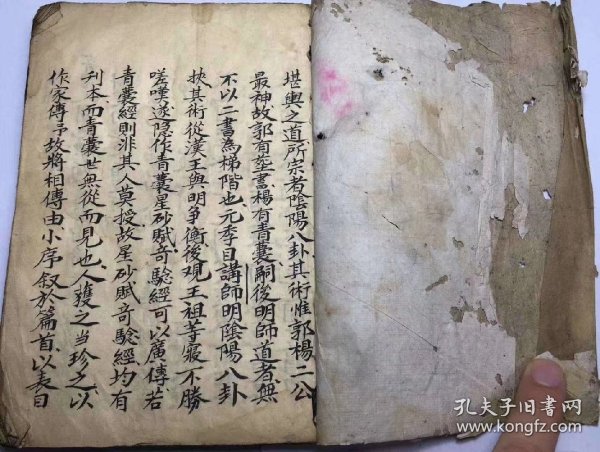 堪輿之道所宗者陰陽八卦其術惟郭楊二公
最神故郭有塟書楊有青囊嗣後明師道者無
不以二書為梯階也元季目講師明陰陽八卦
挾其術從漢王與明爭衡後观王祖等寢不勝
嗟嘆遂隐作青囊星砂賦奇驗經可以廣傳若
青囊經則非其人莫授故星砂賦奇驗經均有
刋本而青囊世無從而見也人獲之當珍之以
作家傳予故將相傳由小序叙於篇首以表目
孔夫子旧书网
www.kongfz.com